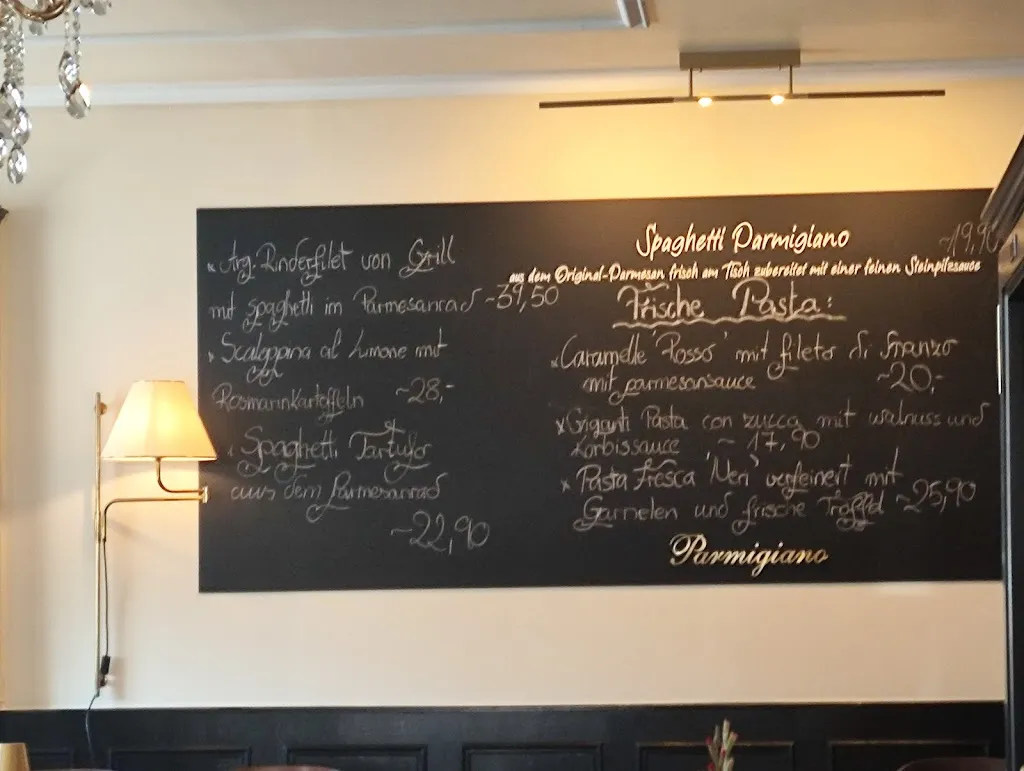 * Arg. Rinderfilet von Grill
mit spaghetti im Parmesanrad ~39,50
* Scaloppina al Limone mit
Rosmarinkartoffeln ~28,-
* Spaghetti Tartufo
aus dem Parmesanrad
~22,90
Spaghetti Parmigiano ~19,90
aus dem Original-Parmesan frisch am Tisch zubereitet mit einer feinen Steinpilzsauce
Frische Pasta:
* Caramelle 'Rosso' mit fileto di Manzo
mit parmesansauce ~20,-
* Giganti Pasta con zucca mit walnuss und
Kürbissauce ~17,90
* Pasta Fresca 'Neri' verfeinert mit
Garnelen und frische Trüffel ~25,90
Parmigiano